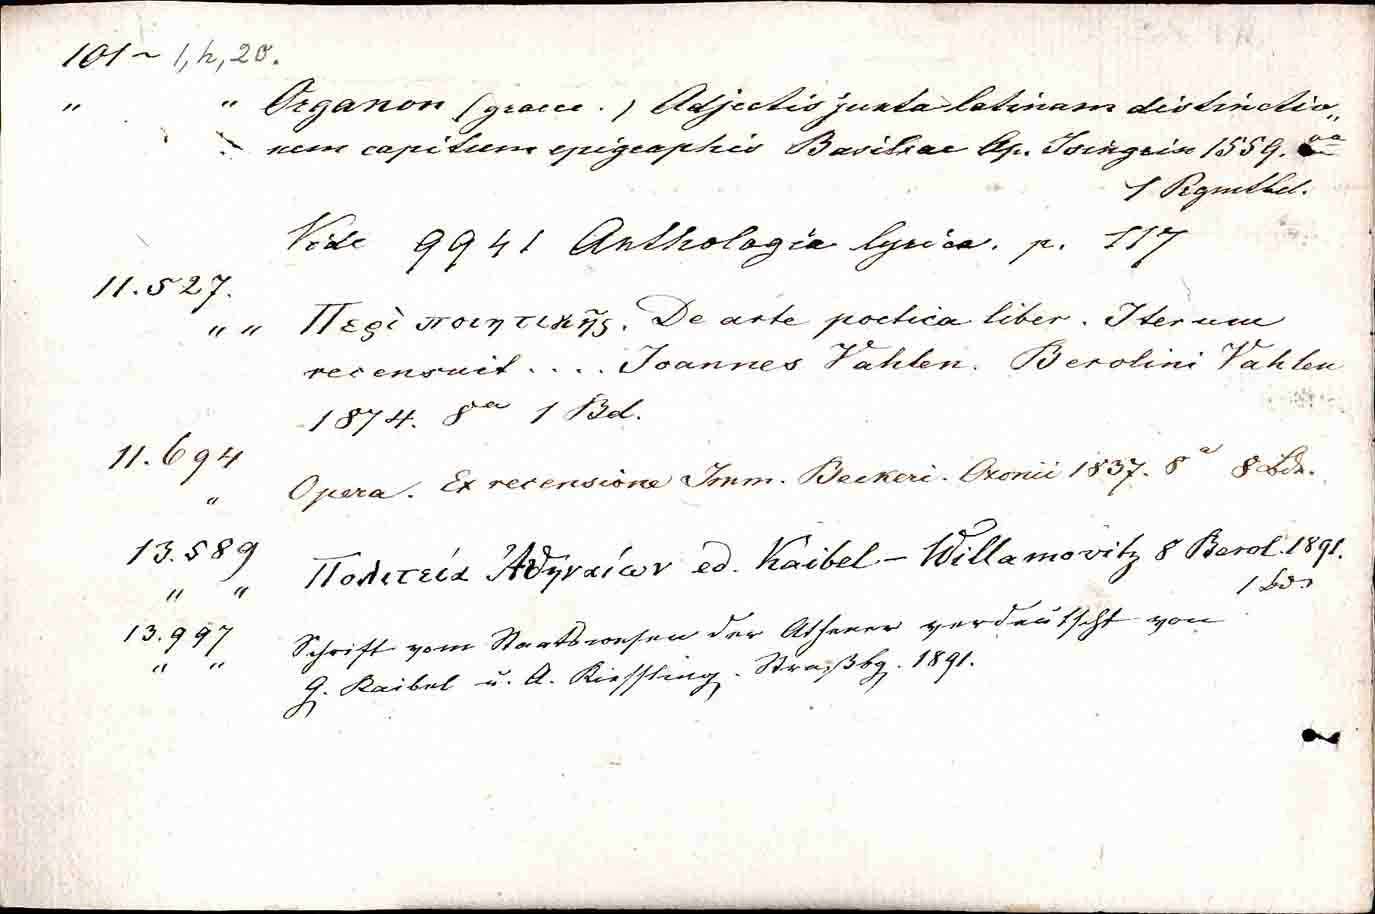 101~ 1, h, 20.
" " Organon (graece.) Adjectis juxta latinam distinctio„
nem capitum epigraphis Basileae Ap. Isingrin 1559.
1 Pgmtbd.
Vide 9941 Anthologia lyrica. p. 117
11.527.
" " Περὶ ποιητικῆς. De arte poetica liber. Iterum
recensuit .... Joannes Vahlen. Berolini Vahlen
1874. 8a 1 Bd.
11.694
" Opera. Ex recensione Imm. Beckeri. Oxonii 1837. 8a 8 Bde.
13.589
" " Πολιτεία Ἀθηναίων ed. Kaibel – Willamovitz 8 Berol. 1891.
1 Bd.
13.997
" " Schrift vom Staatswesen der Athener verdeutscht von
G. Kaibel u. A. Kiessling. Straßbg. 1891.